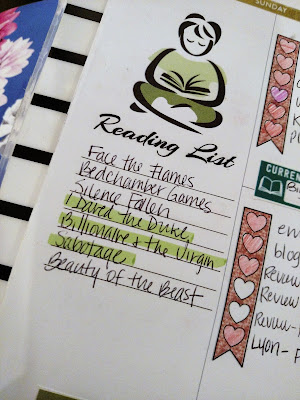 SUNDAY
Reading List
Face the Flames
Bedchamber Games
Silence Fallen
I Dared the Duke
Billionaire & the Virgin
Sabotage
Beauty of the Beast
CURREN
blog
Review
Review
Review-
Lyon-